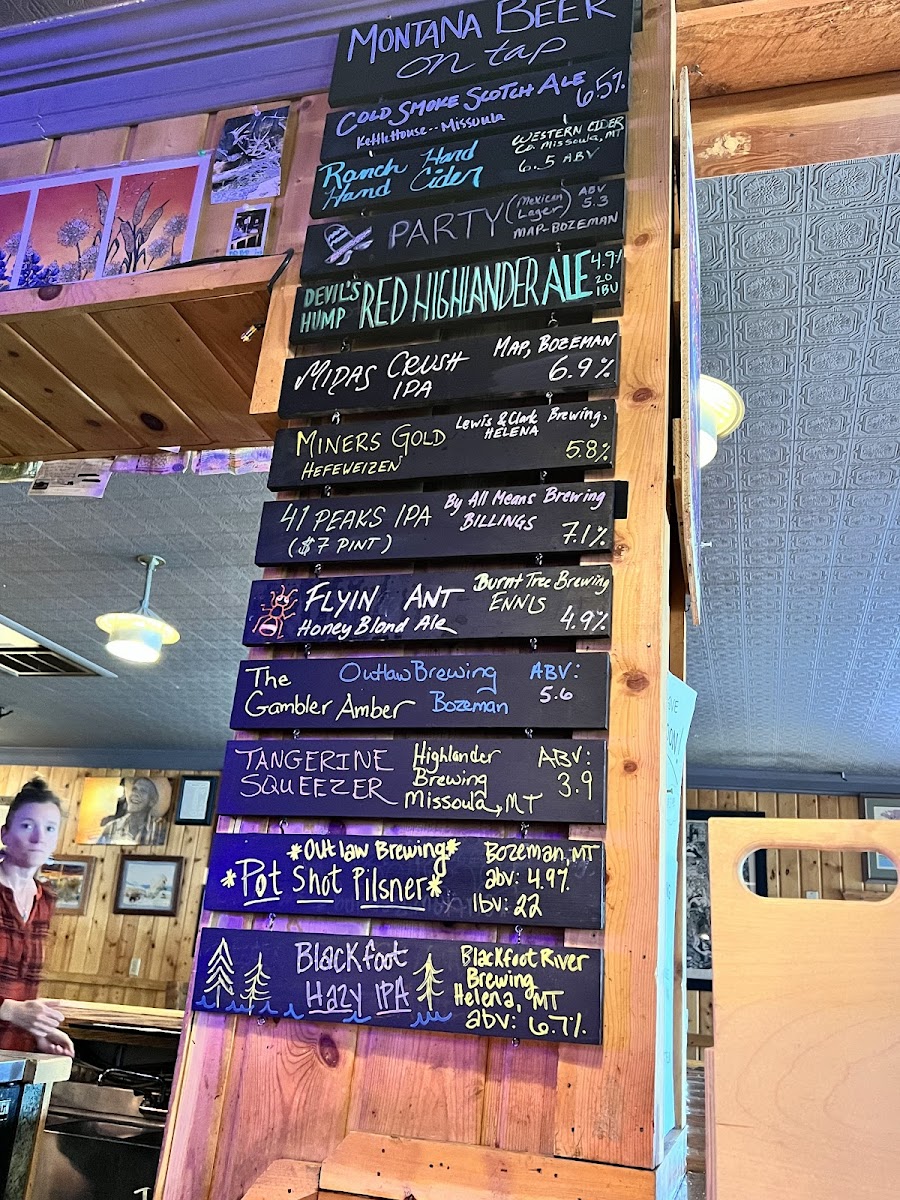 MONTANA BEER
on tap
COLD SMOKE SCOTCH ALE 6.5%
KettleHouse -- Missoula
Ranch Hard
Hand Cider
WESTERN CIDER
Co. Missoula, MT
6.5 ABV
PARTY (Mexican Lager) ABV 5.3
MAP-BOZEMAN
DEVIL'S HUMP RED HIGHLANDER ALE 4.9%
20 IBU
MIDAS CRUSH
IPA
MAP, BOZEMAN
6.9%
MINERS GOLD
HEFEWEIZEN
Lewis & Clark Brewing,
HELENA
5.8%
41 PEAKS IPA
($7 PINT)
By All Means Brewing
BILLINGS
7.1%
FLYIN ANT
Honey Blond Ale
Burnt Tree Brewing
ENNIS
4.9%
The
Gambler Amber
Outlaw Brewing
Bozeman
ABV:
5.6
TANGERINE
SQUEEZER
Highlander
Brewing
Missoula, MT
ABV:
3.9
*Outlaw Brewing*
*Pot Shot Pilsner*
Bozeman, MT
abv: 4.9%
Ibv: 22
Blackfoot
Hazy IPA
Blackfoot River
Brewing
Helena, MT
abv: 6.7%